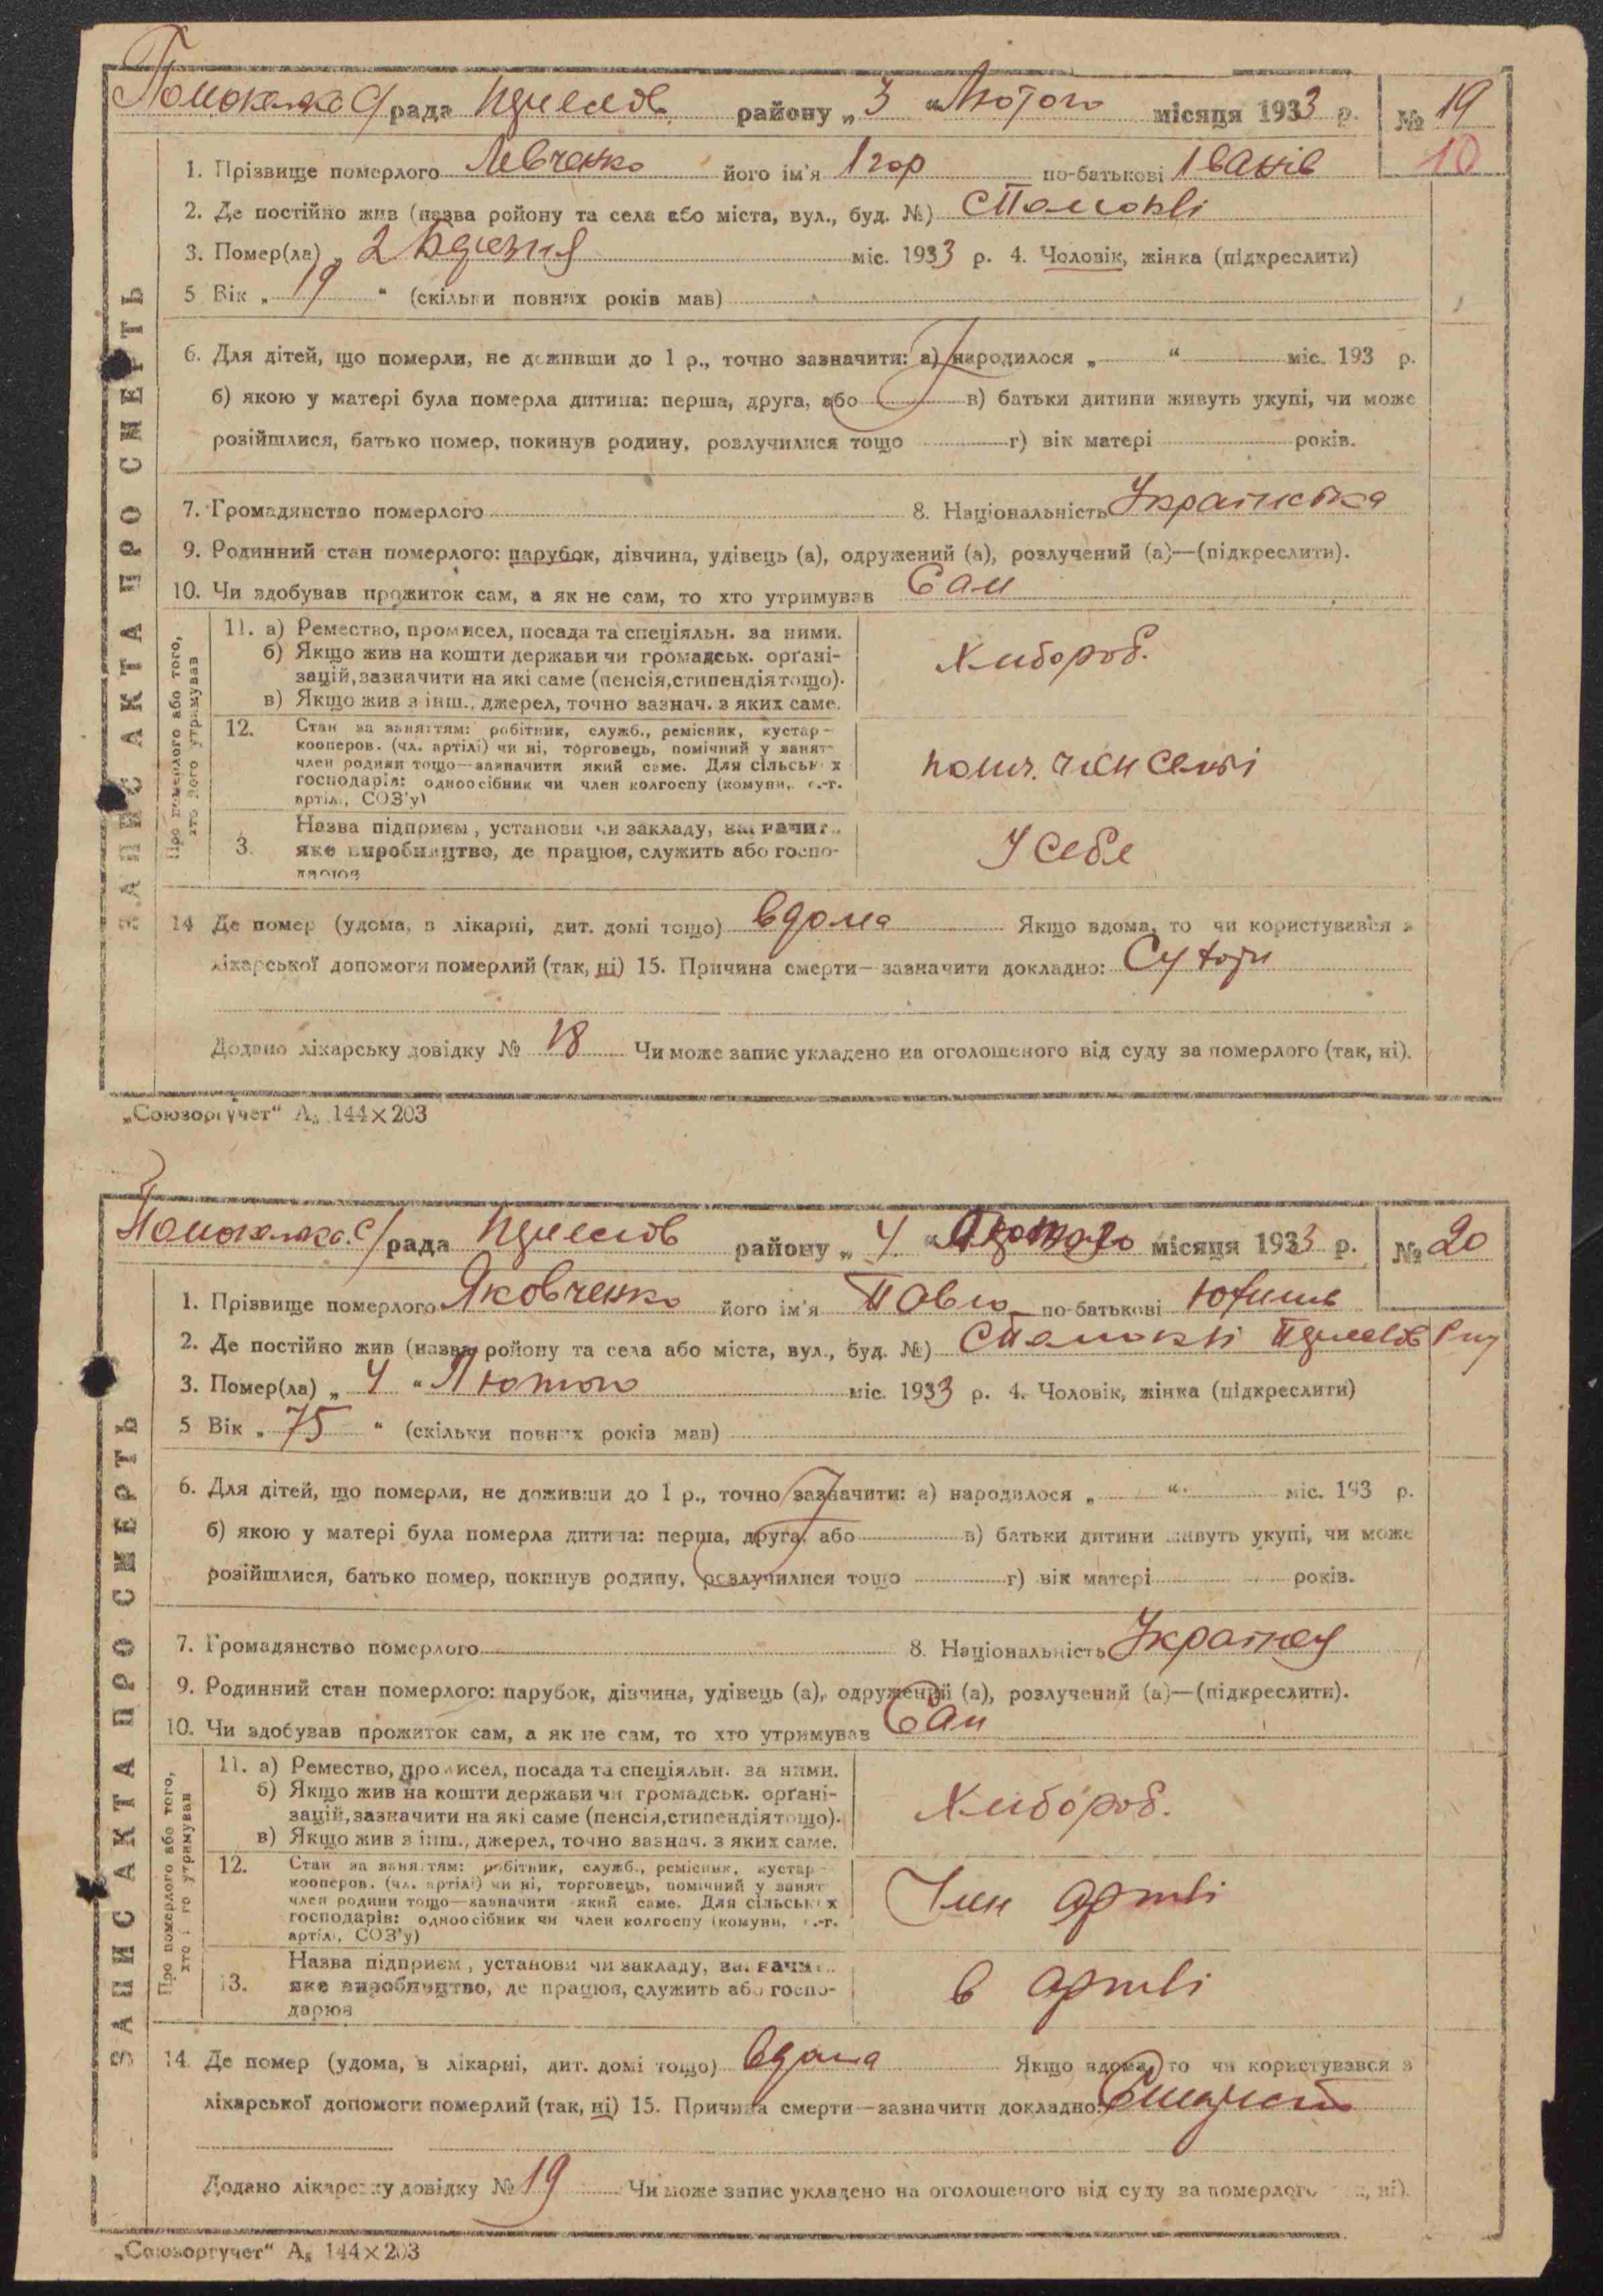 рада району „ 3 “ Лютого місяця 1933 р. № 19
10
1. Прізвище померлого Левченко його ім'я Ігор по-батькові Іванів
2. Де постійно жив (назва ройону та села або міста, вул., буд. №)
3. Помер(ла) „ 2 Березня міс. 1933 р. 4. Чоловік, жінка (підкреслити)
5 Вік „ 19 “ (скільки повних років мав)
6. Для дітей, що померли, не доживши до 1 р., точно зазначити: а) народилося „ “ міс. 193 р.
б) якою у матері була померла дитина: перша, друга, або в) батьки дитини живуть укупі, чи може
розійшлися, батько помер, покинув родину, розлучилися тощо г) вік матері років.
7. Громадянство померлого 8. Національність Українська
9. Родинний стан померлого: парубок, дівчина, удівець (а), одружений (а), розлучений (а)—(підкреслити).
10. Чи здобував прожиток сам, а як не сам, то хто утримував Сам
Про померлого або того, хто його утримував
11. а) Ремество, промисел, посада та спеціяльн. за ними.
б) Якщо жив на кошти держави чи громадськ. орґані-
зацій, зазначити на які саме (пенсія, стипендія тощо).
в) Якщо жив з інш., джерел, точно зазнач. з яких саме.
Хлібороб.
12. Стан за заняттям: робітник, служб., ремісник, кустар-
кооперов. (чл. артілі) чи ні, торговець, помічний у занят-
член родини тощо—зазначити який саме. Для сільськ х
господарів: одноосібник чи член колгоспу (комуни, с.-г.
артіл., СОЗ'у)
поміч. член семьі
3. Назва підприєм , установи чи закладу,
яке виробництво, де працює, служить або госпо-
дарює
У себе
14 Де помер (удома, в лікарні, дит. домі тощо) вдома Якщо вдома, то чи користувався з
лікарської допомоги померлий (так, ні) 15. Причина смерти—зазначити докладно:
Додано лікарську довідку № 18 Чи може запис укладено на оголошеного від суду за померлого (так, ні).
ЗАПИС АКТА ПРО СМЕРТЬ
„Союзоргучет“ А₅ 144×203
рада району „ 4 “ Лютого місяця 1933 р. № 20
1. Прізвище померлого Яковченко його ім'я Павло по-батькові
2. Де постійно жив (назва ройону та села або міста, вул., буд. №)
3. Помер(ла) „ 4 “ Лютого міс. 1933 р. 4. Чоловік, жінка (підкреслити)
5 Вік „ 75 “ (скільки повних років мав)
6. Для дітей, що померли, не доживши до 1 р., точно зазначити: а) народилося „ “ міс. 193 р.
б) якою у матері була померла дитина: перша, друга, або в) батьки дитини живуть укупі, чи може
розійшлися, батько помер, покинув родину, розлучилися тощо г) вік матері років.
7. Громадянство померлого 8. Національність
9. Родинний стан померлого: парубок, дівчина, удівець (а), одружений (а), розлучений (а)—(підкреслити).
10. Чи здобував прожиток сам, а як не сам, то хто утримував Сам
Про померлого або того, хто його утримував
11. а) Ремество, промисел, посада та спеціяльн. за ними.
б) Якщо жив на кошти держави чи громадськ. орґані-
зацій, зазначити на які саме (пенсія, стипендія тощо).
в) Якщо жив з інш., джерел, точно зазнач. з яких саме.
Хлібороб.
12. Стан за заняттям: робітник, служб., ремісник, кустар-
кооперов. (чл. артілі) чи ні, торговець, помічний у занят
член родини тощо—зазначити який саме. Для сільськ х
господарів: одноосібник чи член колгоспу (комуни, с.-г.
артіл., СОЗ'у)
Член артілі
13. Назва підприєм , установи чи закладу,
яке виробництво, де працює, служить або госпо-
дарює
в артілі
14. Де помер (удома, в лікарні, дит. домі тощо) вдома Якщо вдома, то чи користувався з
лікарської допомоги померлий (так, ні) 15. Причина смерти—зазначити докладно:
Додано лікарську довідку № 19 Чи може запис укладено на оголошеного від суду за померлого ні).
ЗАПИС АКТА ПРО СМЕРТЬ
„Союзоргучет“ А₅ 144×203